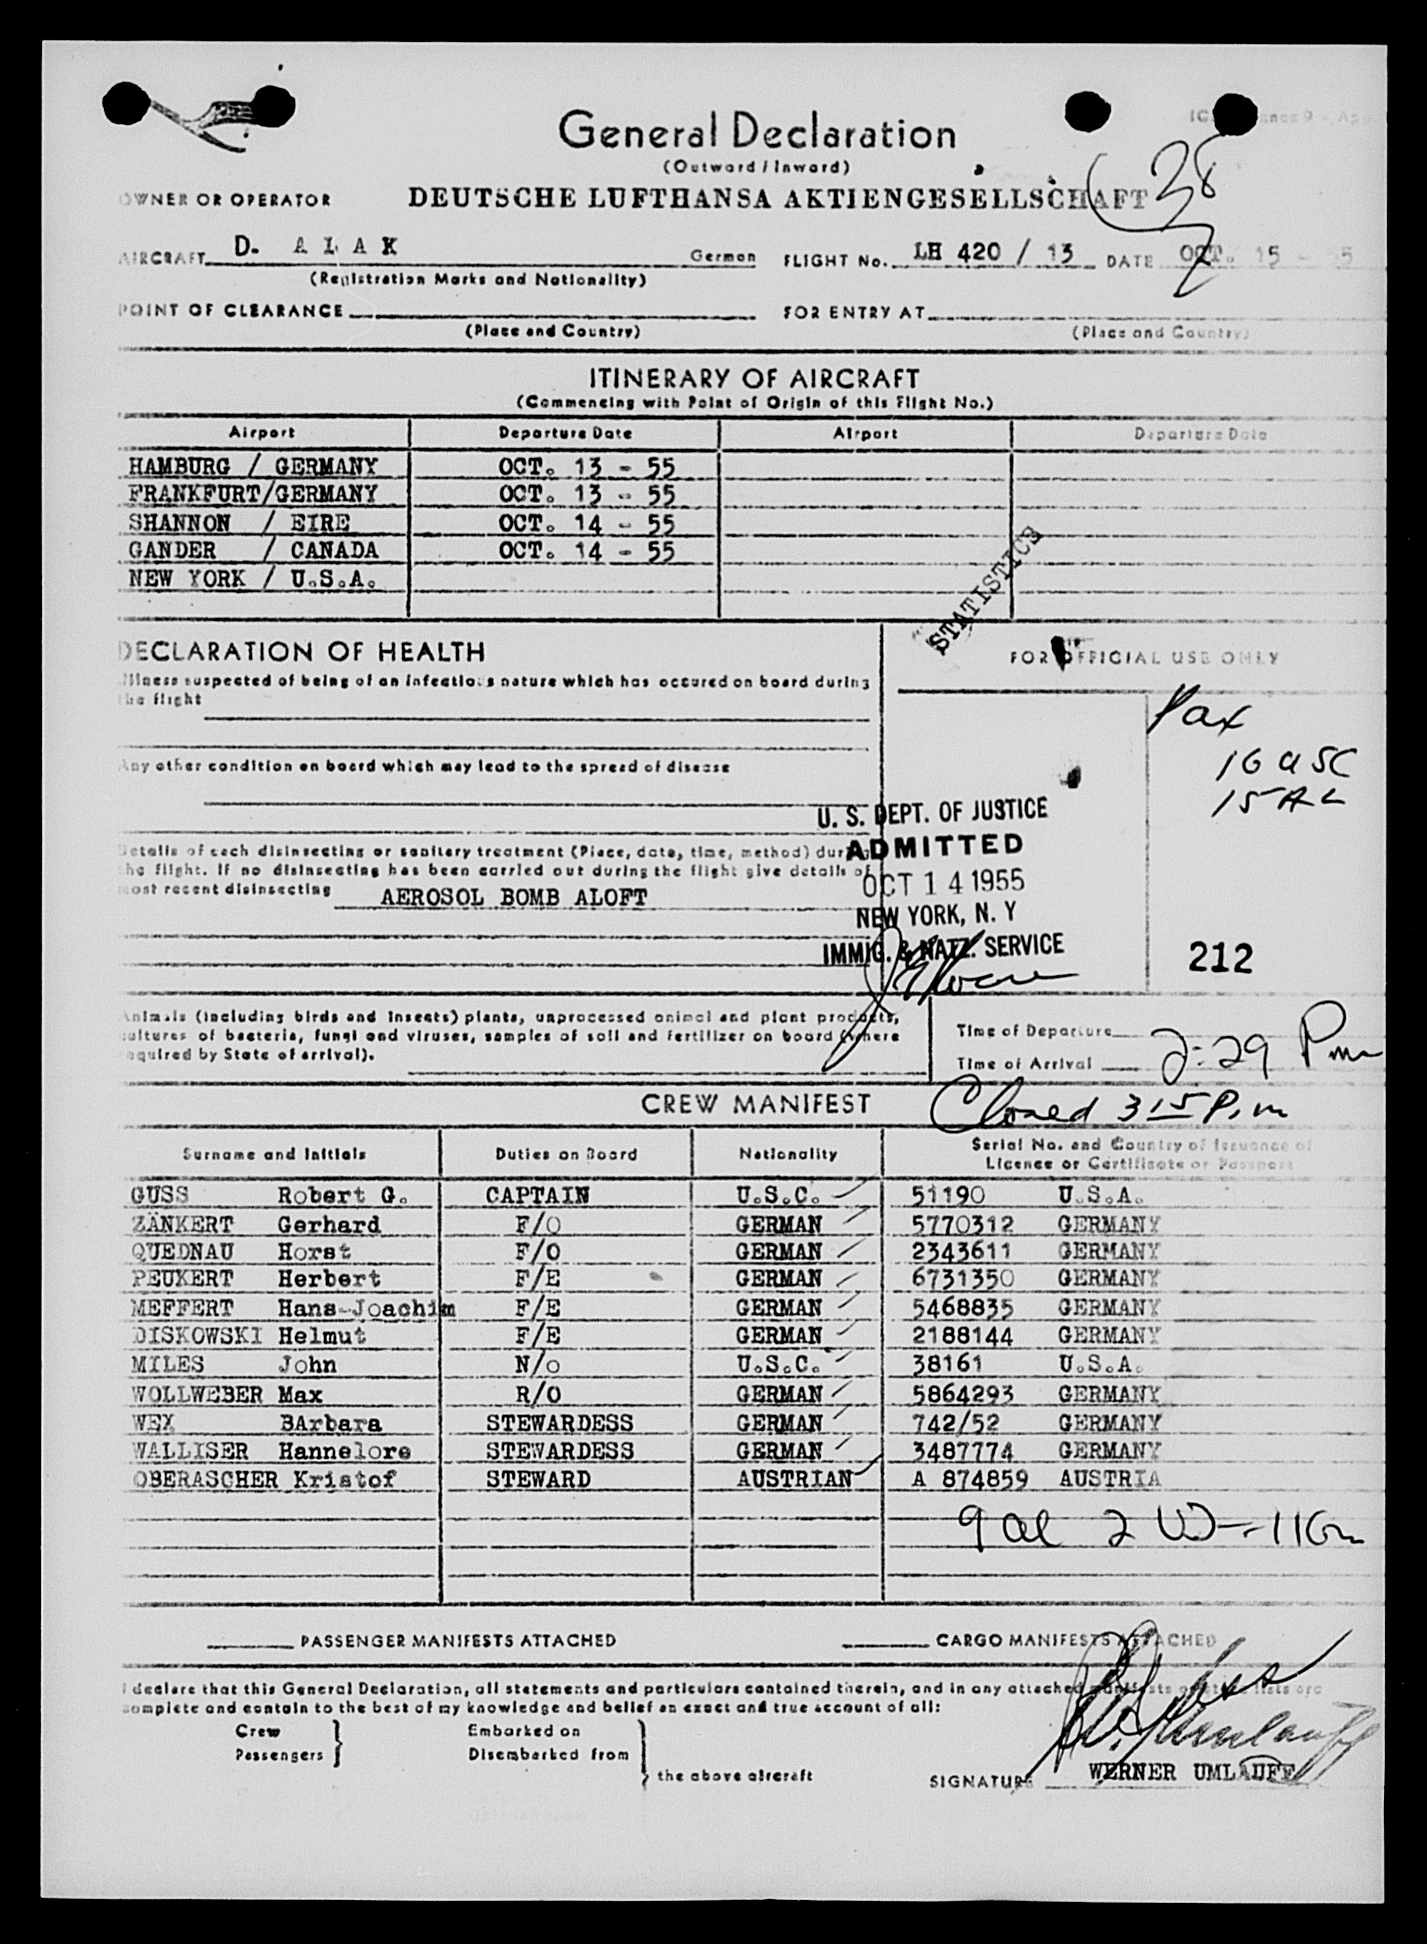 General Declaration
(Outward / Inward)
38
OWNER OR OPERATOR DEUTSCHE LUFTHANSA AKTIENGESELLSCHAFT
AIRCRAFT D. A L A K German FLIGHT No. LH 420 / 13 DATE OCT. 15 - 55
(Registration Marks and Nationality)
POINT OF CLEARANCE FOR ENTRY AT
(Place and Country) (Place and Country)
ITINERARY OF AIRCRAFT
(Commencing with Point of Origin of this Flight No.)
Airport Departure Date Airport Departure Date
HAMBURG / GERMANY OCT. 13 - 55
FRANKFURT/GERMANY OCT. 13 - 55
SHANNON / EIRE OCT. 14 - 55
GANDER / CANADA OCT. 14 - 55
NEW YORK / U.S.A.
STATISTICS
DECLARATION OF HEALTH FOR OFFICIAL USE ONLY
Illness suspected of being of an infectious nature which has occured on board during
the flight
Pax
16 USC
15 AL
Any other condition on board which may lead to the spread of disease
U. S. DEPT. OF JUSTICE
ADMITTED
OCT 14 1955
NEW YORK, N. Y
IMMIG. & NATZ. SERVICE
212
Details of each disinsecting or sanitary treatment (Place, date, time, method) during
the flight. If no disinsecting has been carried out during the flight give details of
most recent disinsecting AEROSOL BOMB ALOFT
Animals (including birds and insects) plants, unprocessed animal and plant products,
cultures of bacteria, fungi and viruses, samples of soil and fertilizer on board (where
required by State of arrival).
Time of Departure
Time of Arrival 2:29 Pm
CREW MANIFEST Closed 315 P.m
Surname and Initials Duties on Board Nationality Serial No. and Country of Issuance of
Licence or Certificate or Passport
GUSS Robert G. CAPTAIN U.S.C. 51190 U.S.A.
ZÄNKERT Gerhard F/O GERMAN 5770312 GERMANY
QUEDNAU Horst F/O GERMAN 2343611 GERMANY
PEUKERT Herbert F/E GERMAN 6731350 GERMANY
MEFFERT Hans-Joachim F/E GERMAN 5468835 GERMANY
DISKOWSKI Helmut F/E GERMAN 2188144 GERMANY
MILES John N/o U.S.C. 38161 U.S.A.
WOLLWEBER Max R/O GERMAN 5864293 GERMANY
WEX BArbara STEWARDESS GERMAN 742/52 GERMANY
WALLISER Hannelore STEWARDESS GERMAN 3487774 GERMANY
OBERASCHER Kristof STEWARD AUSTRIAN A 874859 AUSTRIA
9 al 2
PASSENGER MANIFESTS ATTACHED CARGO MANIFESTS ATTACHED
I declare that this General Declaration, all statements and particulars contained therein, and in any attached manifests or crew lists are
complete and contain to the best of my knowledge and belief an exact and true account of all:
Crew Embarked on
Passengers Disembarked from
the above aircraft
SIGNATURE WERNER UMLAUFF